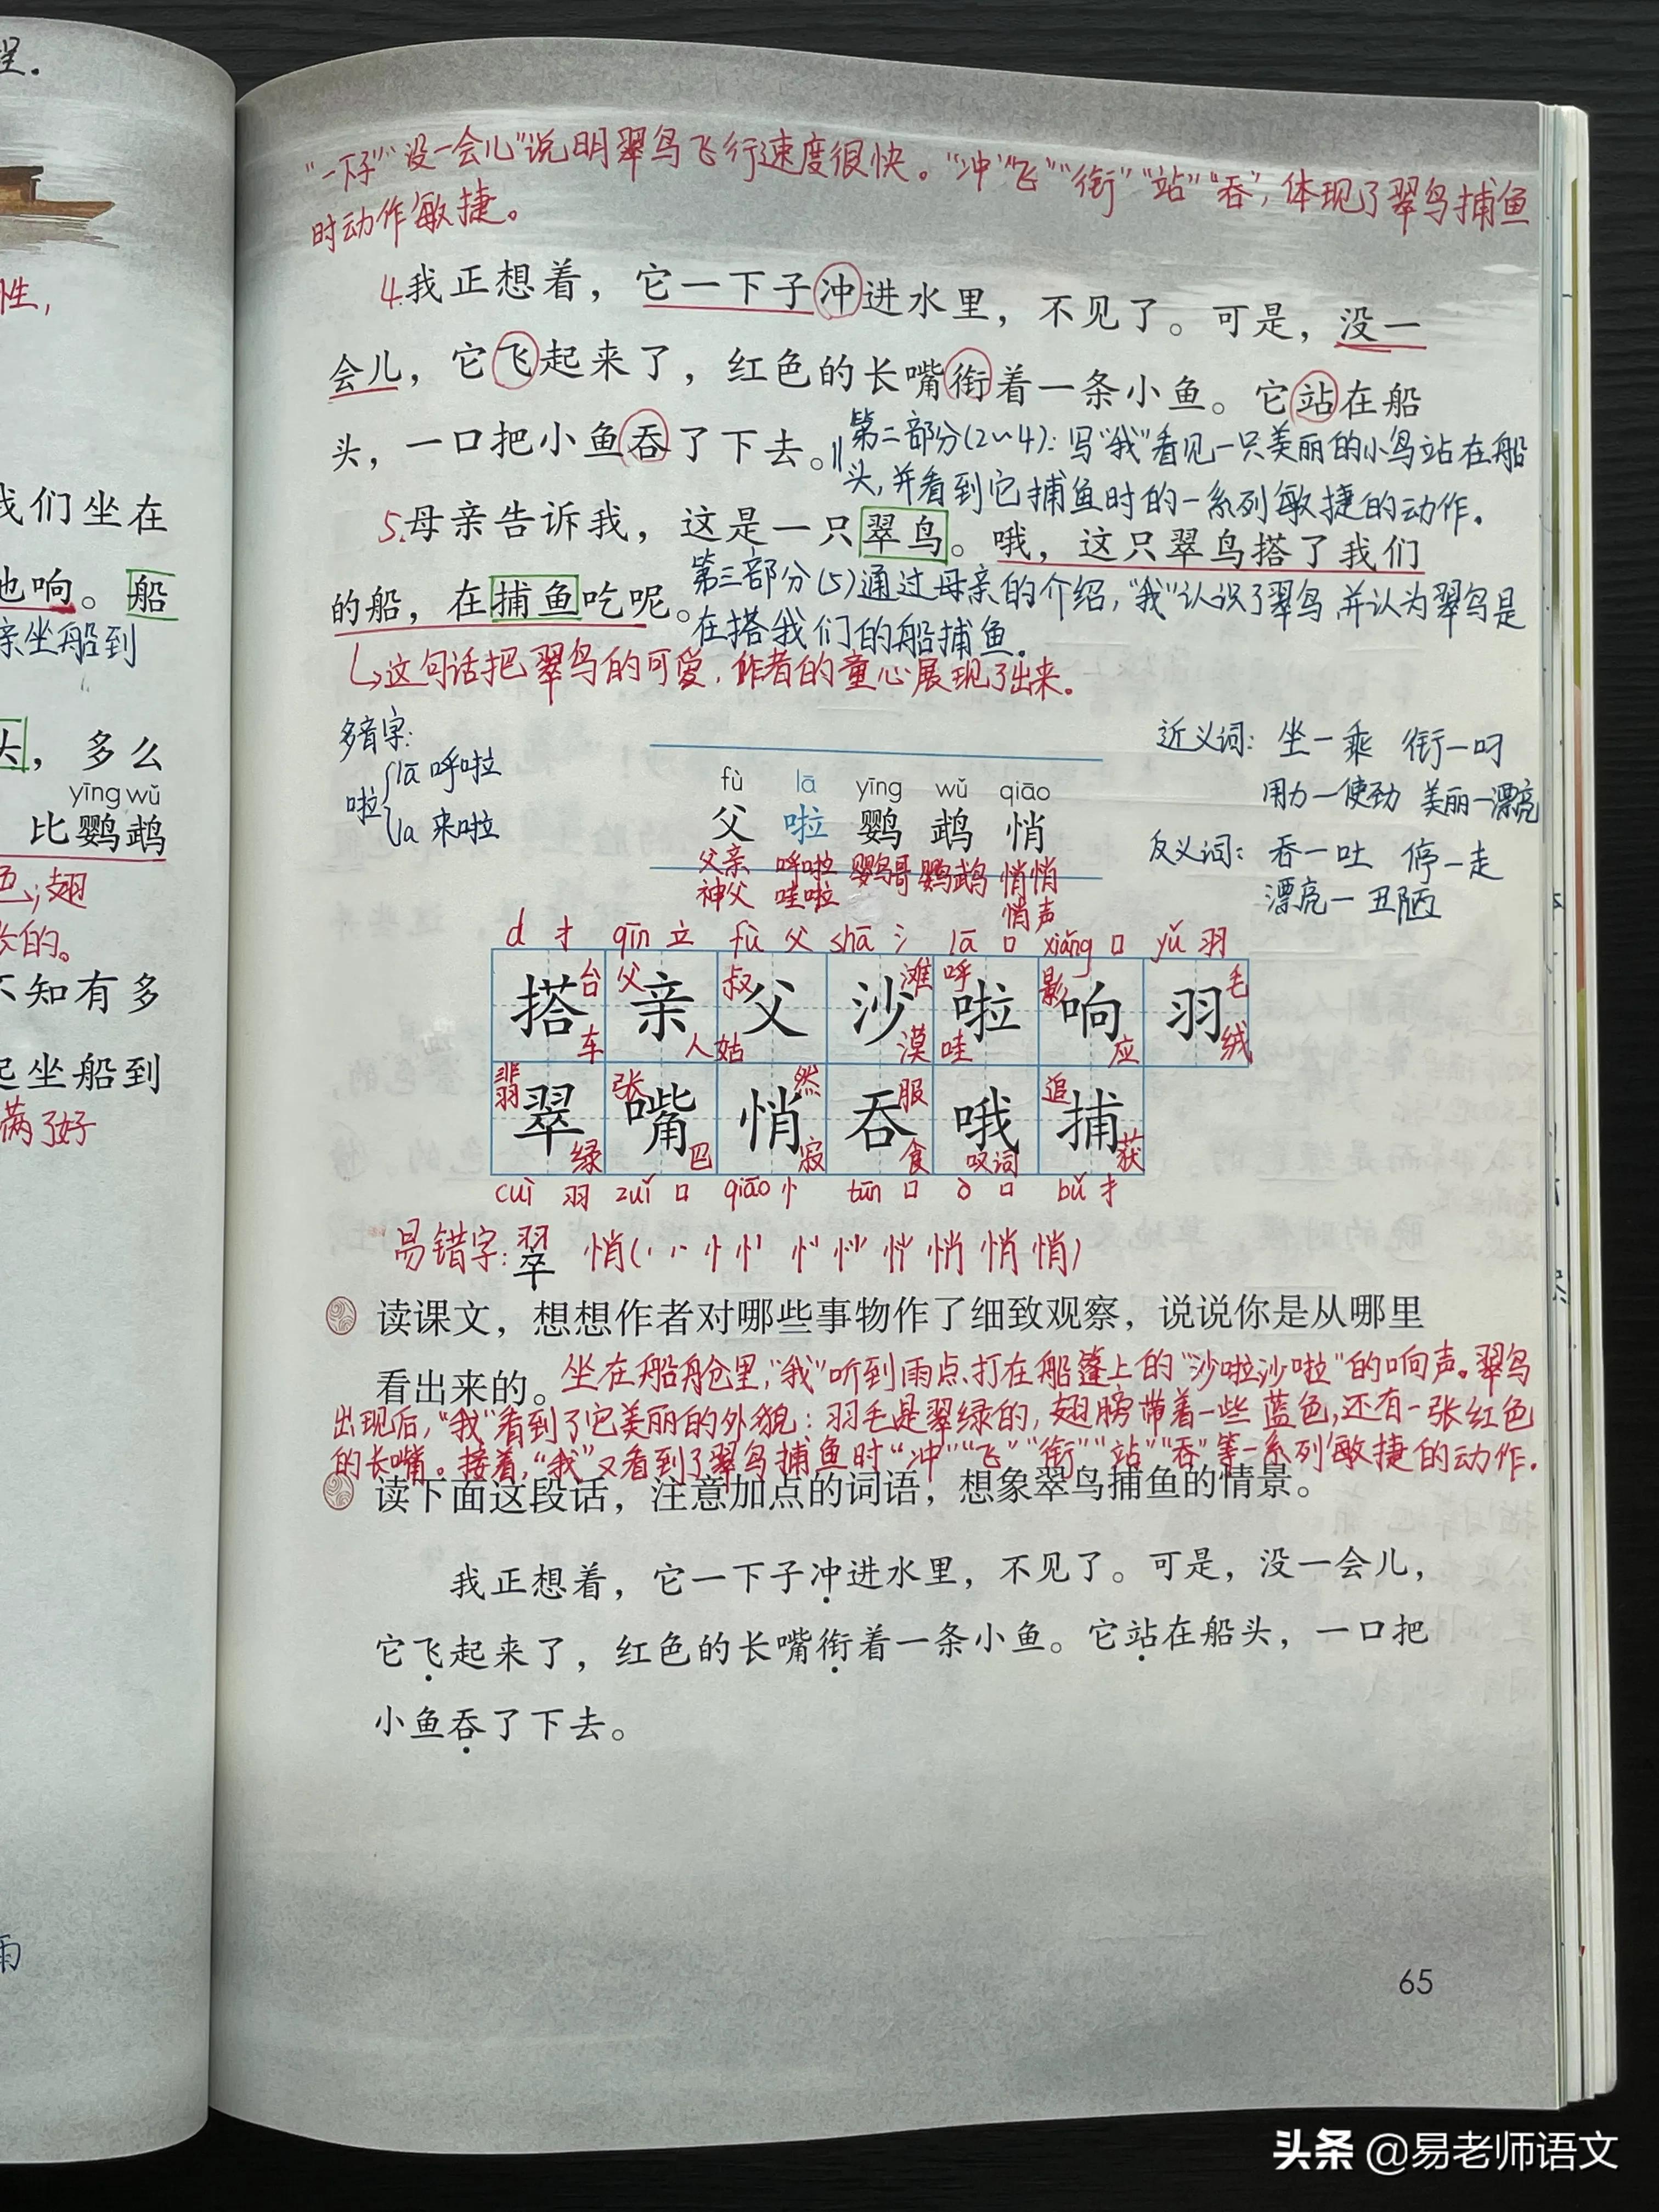 里.
性,
我们坐在
也响。船
亲坐船到
头，多么
yīng wǔ
比鹦鹉
色;翅
长的。
不知有多
起坐船到
满了好
雨
"一下子""没一会儿"说明翠鸟飞行速度很快。"冲""飞""衔""站""吞",体现了翠鸟捕鱼
时动作敏捷。
4.我正想着，它一下子冲进水里，不见了。可是，没一
会儿，它飞起来了，红色的长嘴衔着一条小鱼。它站在船
头，一口把小鱼吞了下去。
第二部分(2~4):写"我"看见一只美丽的小鸟站在船
头,并看到它捕鱼时的一系列敏捷的动作.
5.母亲告诉我，这是一只翠鸟。哦，这只翠鸟搭了我们
的船，在捕鱼吃呢。
第三部分(5)通过母亲的介绍,"我"认识了翠鸟,并认为翠鸟是
在搭我们的船捕鱼.
↳这句话把翠鸟的可爱,作者的童心展现了出来.
多音字:
啦 lā 呼啦
la 来啦
fù lā yīng wǔ qiāo
父 啦 鹦 鹉 悄
父亲 呼啦 鹦哥 鹦鹉 悄悄
神父 哇啦 悄声
近义词: 坐一乘 衔一叼
用力一使劲 美丽一漂亮
反义词: 吞一吐 停一走
漂亮一丑陋
d 扌 qīn 立 fù 父 shā 氵 lā 口 xiǎng 口 yǔ 羽
台 父 叔 滩 呼 影 毛
搭 亲 父 沙 啦 响 羽
车 人 姑 漠 哇 应 绒
翡 张 然 服 追
翠 嘴 悄 吞 哦 捕
绿 巴 寂 食 叹词 获
cuì 羽 zuǐ 口 qiāo 忄 tūn 口 ò 口 bǔ 扌
易错字: 翠 悄
读课文，想想作者对哪些事物作了细致观察，说说你是从哪里
看出来的。
坐在船舱里,"我"听到雨点打在船篷上的"沙啦沙啦"的响声。翠鸟
出现后,"我"看到了它美丽的外貌:羽毛是翠绿的,翅膀带着一些蓝色,还有一张红色
的长嘴。接着,"我"又看到了翠鸟捕鱼时"冲""飞""衔""站""吞"等一系列敏捷的动作.
读下面这段话，注意加点的词语，想象翠鸟捕鱼的情景。
我正想着，它一下子冲进水里，不见了。可是，没一会儿，
它飞起来了，红色的长嘴衔着一条小鱼。它站在船头，一口把
小鱼吞了下去。
65
头条 @易老师语文